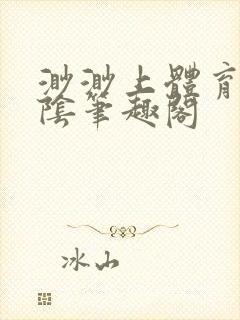 渺渺上體育
陰筆趣閣
冰山